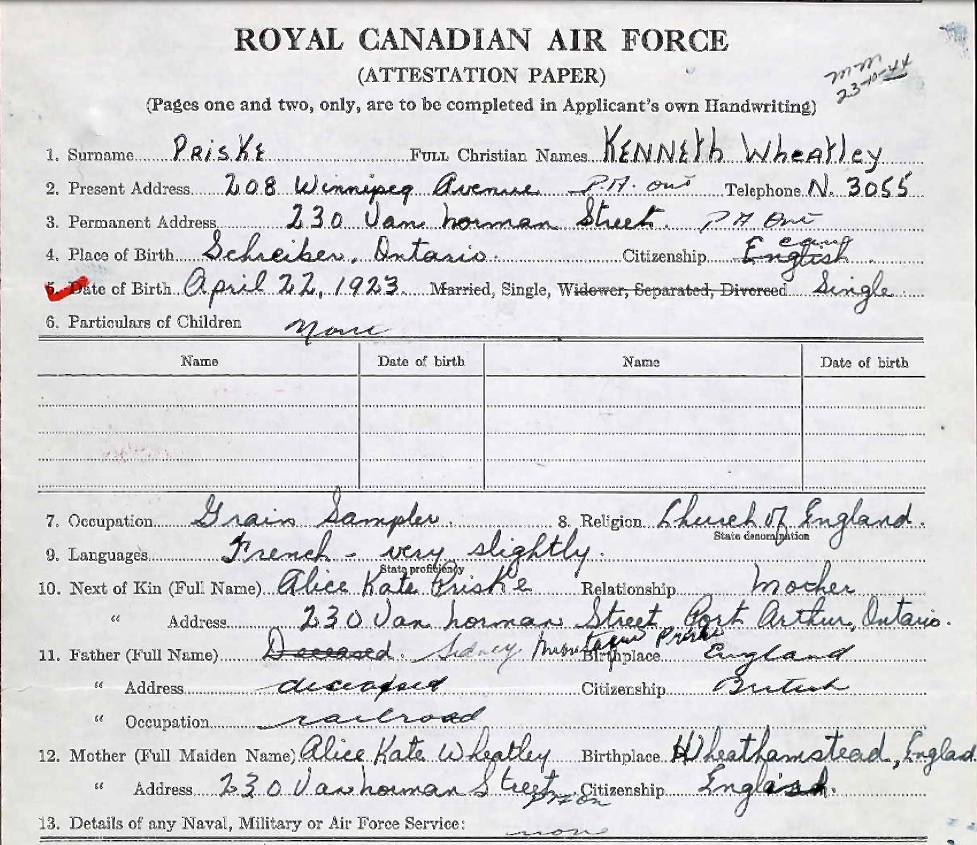 ROYAL CANADIAN AIR FORCE
(ATTESTATION PAPER)
(Pages one and two, only, are to be completed in Applicant's own Handwriting)
1. Surname PRISKE FULL Christian Names KENNETH Wheatley
2. Present Address 208 Winnipeg Avenue P.A. Ont Telephone N. 3055
3. Permanent Address 230 Van horman Street. P A Ont
4. Place of Birth Schreiber, Ontario. Citizenship English
5. Date of Birth April 22, 1923. Married, Single, Widower, Separated, Divorced Single
6. Particulars of Children None
Name Date of birth Name Date of birth
7. Occupation Grain Sampler. 8. Religion Church of England.
State denomination
9. Languages French - very slightly.
State proficiency
10. Next of Kin (Full Name) Alice Kate Priske Relationship Mother
" Address 230 Van horman Street, Port Arthur, Ontario.
11. Father (Full Name) Deceased. Sidney Priske Birthplace England
" Address deceased Citizenship British
" Occupation railroad
12. Mother (Full Maiden Name) Alice Kate Wheatley Birthplace Wheathamstead, England
" Address 230 Van horman Street Citizenship English.
13. Details of any Naval, Military or Air Force Service: none